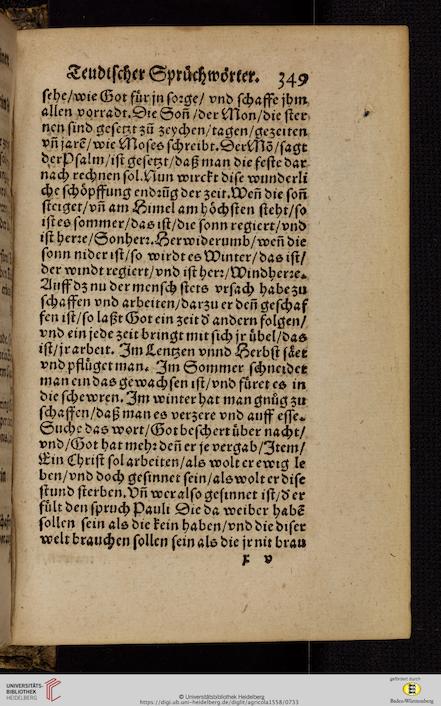 Teudischer Sprüchwörter. 349
sehe/wie Got für jn sorge/ vnd schaffe jhm
allen vorradt. Die Soñ /der Mon/die ster
nen sind gesetzt zů zeychen/tagen/gezeiten
vñ jarē/ wie Moses schreibt. Der Mõ/sagt
der Psalm/ist gesetzt/daß man die feste dar
nach rechnen sol. Nun wirckt dise wunderli
che schöpffung endrůg der zeit. Weñ die soñ
steiget/vñ am Himel am höchsten steht/so
ist es sommer/das ist/die sonn regiert/vnd
ist herre/Sonherr. Herwiderumb/weñ die
sonn nider ist/so wirdt es Winter/das ist/
der windt regiert/vnd ist herr/Windherre.
Auff dz nu der mensch stets vrsach habe zu
schaffen vnd arbeiten/darzu er deñ geschaf
fen ist/so laßt Got ein zeit d' andern folgen/
vnd ein jede zeit bringt mit sich jr übel/das
ist/jr arbeit. Im Lentzen vnnd Herbst säet
vnd pflüget man. Im Sommer schneidet
man ein das gewachsen ist/vnd füret es in
die schewren. Im winter hat man gnůg zu
schaffen/daß man es verzere vnd auff esse.
Suche das wort/Got beschert über nacht/
vnd/Got hat mehr deñ er je vergab/Item/
Ein Christ sol arbeiten/als wolt er ewig le
ben/vnd doch gesinnet sein/als wolt er dise
stund sterben. Vñ wer also gesinnet ist/d' er
fült den spruch Pauli Die da weiber habē
sollen sein als die kein haben/vnd die diser
welt brauchen sollen sein als die jr nit brau
x v
UNIVERSITÄTS-
BIBLIOTHEK
HEIDELBERG
© Universitätsbibliothek Heidelberg
https://digi.ub.uni-heidelberg.de/diglit/agricola1558/0733
gefördert durch
Baden-Württemberg